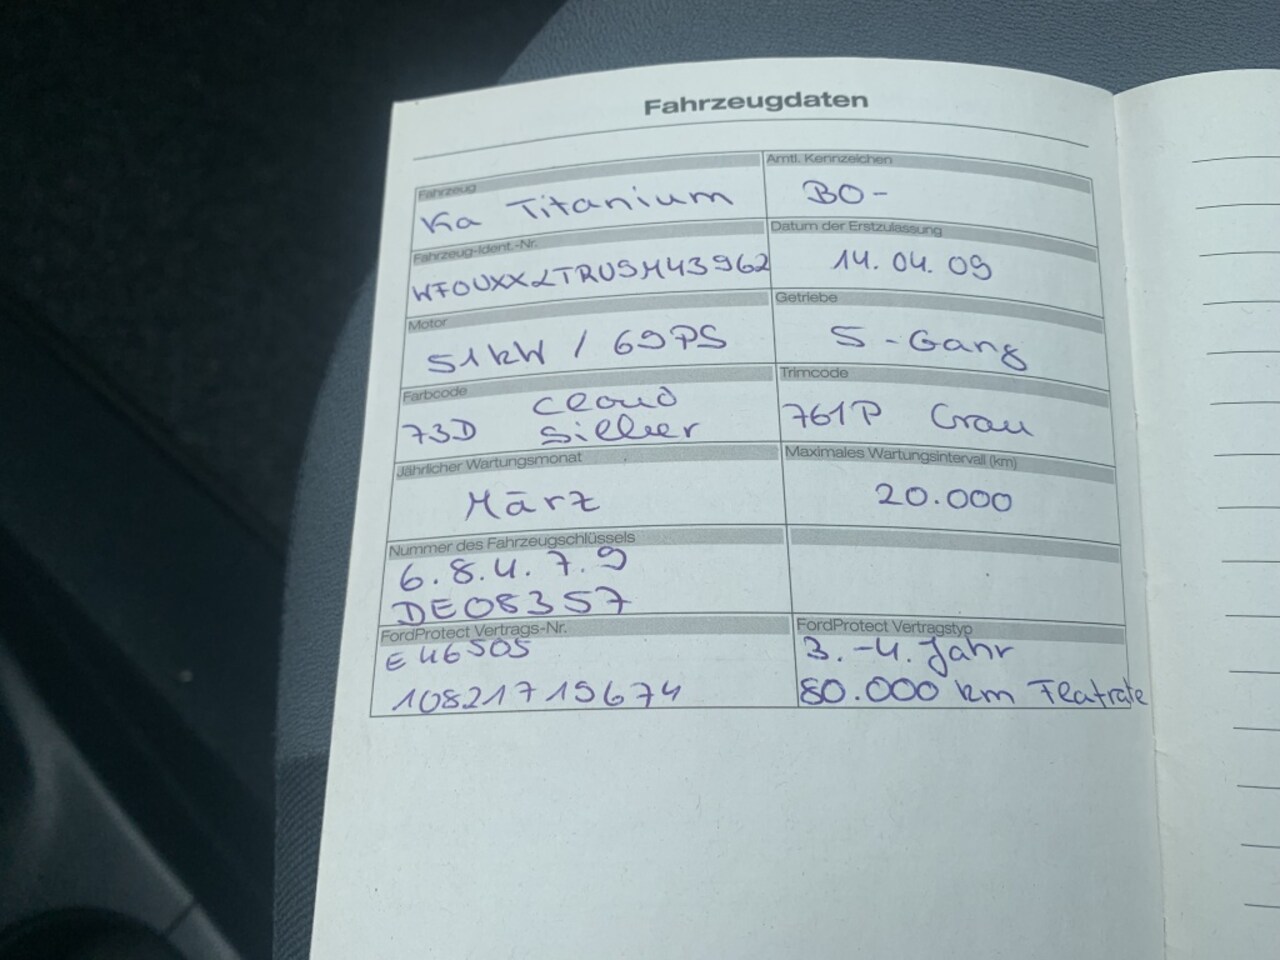 Fahrzeugdaten
Fahrzeug
Ka Titanium
Amtl. Kennzeichen
BO-
Fahrzeug-Ident.-Nr.
WF0UXXLTRU9M43962
Datum der Erstzulassung
14.04.09
Motor
51kW / 69PS
Getriebe
5-Gang
Farbcode
73D cloud
silber
Trimcode
761P Grau
Jährlicher Wartungsmonat
März
Maximales Wartungsintervall (km)
20.000
Nummer des Fahrzeugschlüssels
6.8.4.7.9
DE08357
FordProtect Vertrags-Nr.
E46505
10821719674
FordProtect Vertragstyp
3.-4. Jahr
80.000 km Flatrate